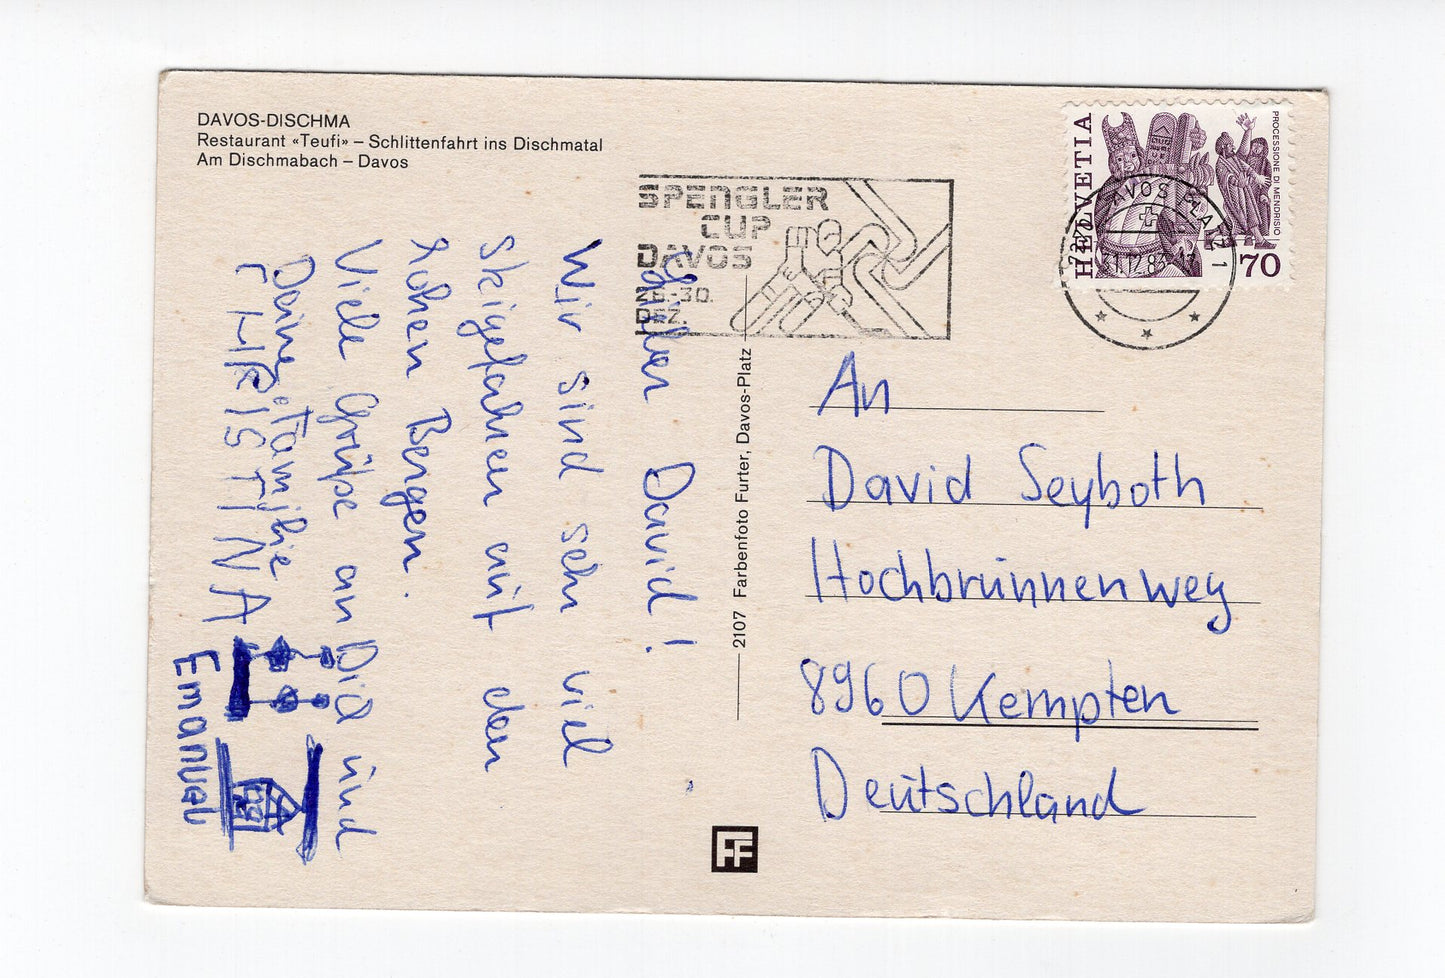 DAVOS-DISCHMA
Restaurant «Teufi» – Schlittenfahrt ins Dischmatal
Am Dischmabach – Davos
SPENGLER
CUP
DAVOS
26.-30.
DEZ.
HELVETIA
PROCESSIONE DI MENDRISIO
70
DAVOS PLATZ 1
31.12.83-17
Lieber David!
Wir sind sehr viel
Skigefahren auf den
hohen Bergen.
Viele Grüße an Dich und
Deine Familie
CHRISTINA
Emanuel
2107 Farbenfoto Furter, Davos-Platz
An
David Seyboth
Hochbrunnenweg
8960 Kempten
Deutschland
FF